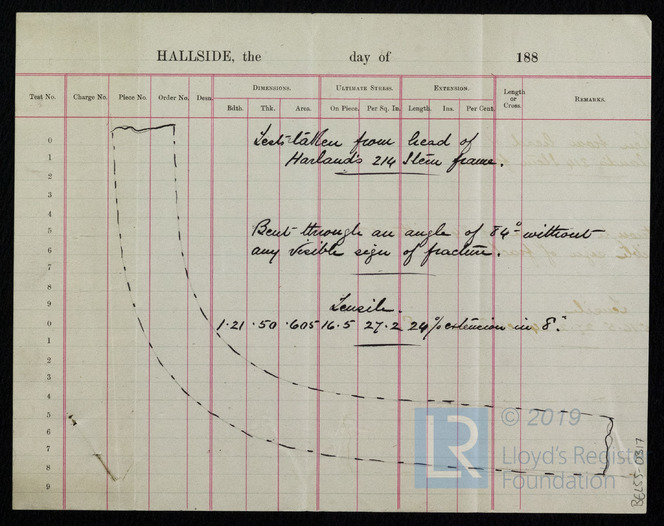 HALLSIDE, the day of 188
Test No. Charge No. Piece No. Order No. Desn. DIMENSIONS. ULTIMATE STRESS. EXTENSION. Length or Cross. REMARKS.
Bdth. Thk. Area. On Piece. Per Sq. In. Length. Ins. Per Cent.
0
1
2
3
4
5
6
7
8
9
0
1
2
3
4
5
6
7
8
9
Test taken from head of
Harland's 214 Stem frame.
Bent through an angle of 84° without
any visible sign of fracture.
Tensile.
1.21 .50 .605 16.5 27.2 24% extencion in 8".
LR
© 2019
Lloyd's Register
Foundation
BELSS-0317